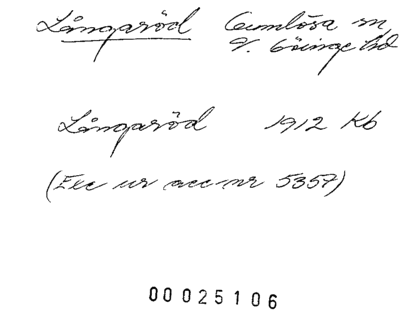 Långaröd Gumlösa sn
V. Göinge hd
Långaröd 1912 Kb
(Exc ur acc-nr 5357)
00025106